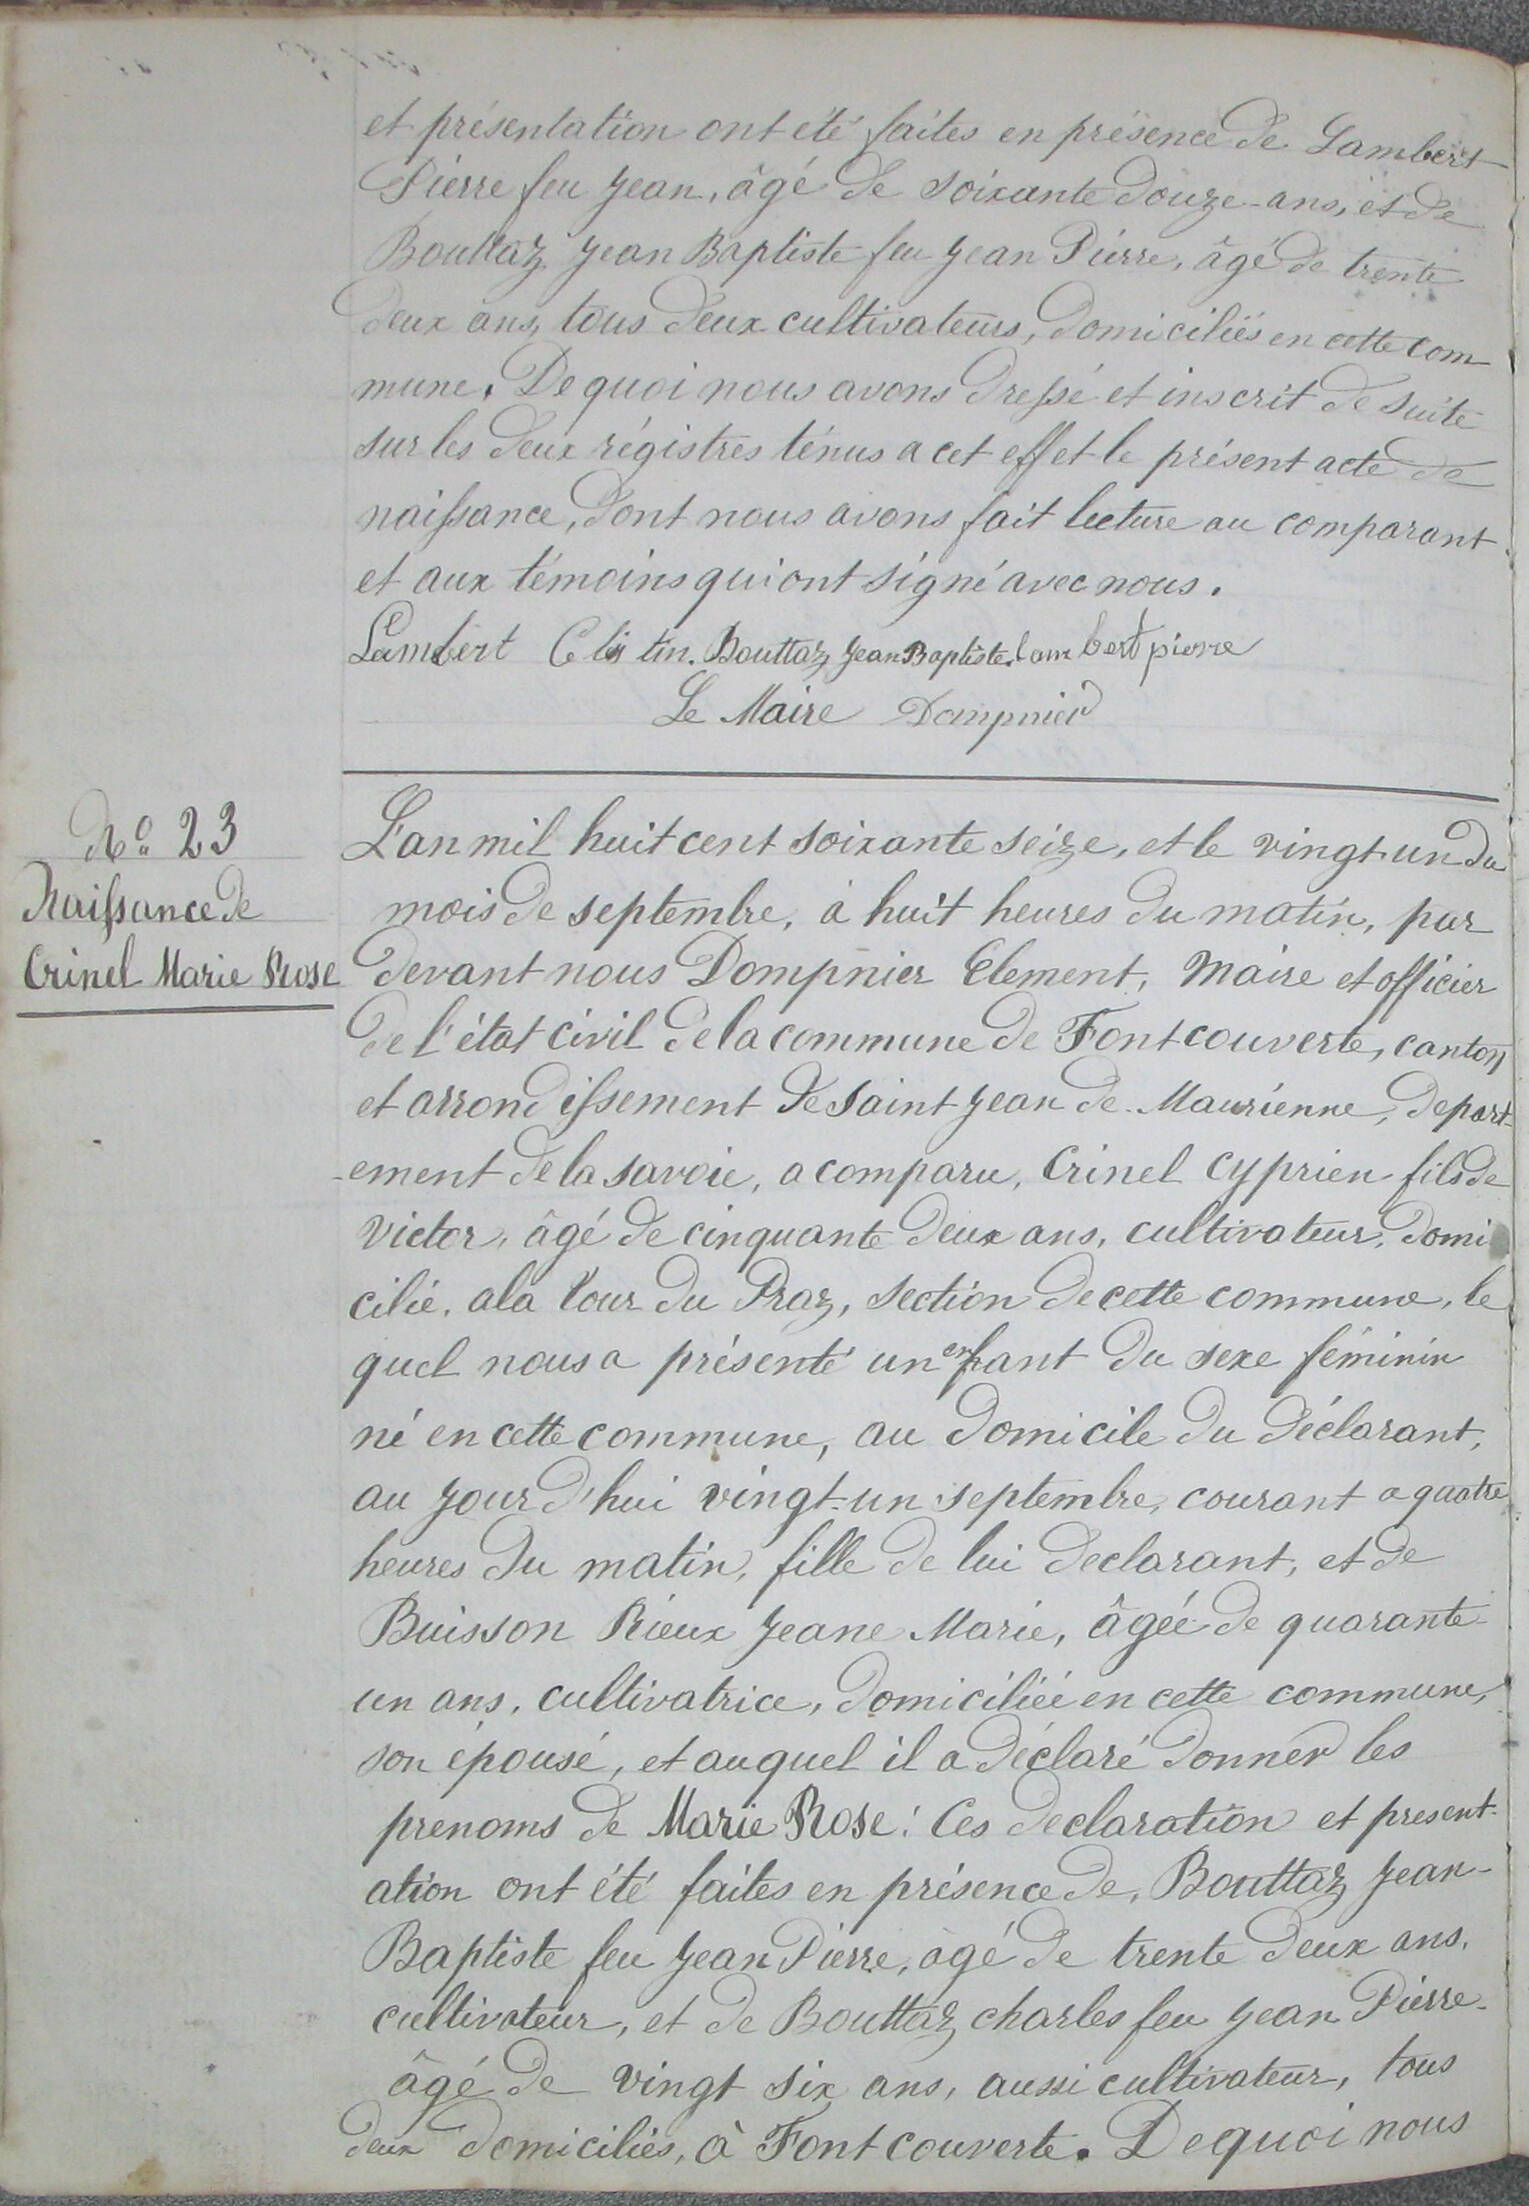 et présentation ont été faites en présence de Lambert
Pierre feu Jean, âgé de soixante douze ans, et de
Bouttaz Jean Baptiste feu Jean Pierre, âgé de trente
deux ans, tous deux cultivateurs, domiciliés en cette com
mune. De quoi nous avons dressé et inscrit de suite
sur les deux régistres ténus a cet effet le présent acte de
naissance, dont nous avons fait lecture au comparant
et aux témoins qui ont signé avec nous.
Lambert Celistin. Bouttaz Jean Baptiste. lambert pierre
Le Maire Dompnier
No 23
Naissance de
Crinel Marie Rose
L'an mil huit cent soixante seize, et le vingt-un du
mois de septembre, à huit heures du matin, par
devant nous Dompnier Clement, Maire et officier
de l'état civil de la commune de Fontcouverte, canton
et arrondissement de Saint Jean de Maurienne, depart-
-ement de la savoie, a comparu, Crinel Cyprien fils de
Victor, âgé de cinquante deux ans, cultivateur, domi
cilié, a la Cour du Praz, section de cette commune, le
quel nous a présenté un enfant du sexe féminin
né en cette commune, au domicile du déclarant,
au jour d'hui vingt-un septembre, courant a quatre
heures du matin, fille de lui declarant, et de
Buisson Rieux Jeane Marie, âgée de quarante-
un ans, cultivatrice, domiciliée en cette commune,
son épousé, et auquel il a déclaré donner les
prenoms de Marie Rose: Ces declaration et present-
ation ont été faites en présence de, Bouttaz Jean-
Baptiste feu Jean Pierre, âgé de trente deux ans,
cultivateur, et de Bouttaz charles feu Jean Pierre-
âgé de vingt six ans, aussi cultivateur, tous
deux domiciliés, à Fontcouverte. De quoi nous